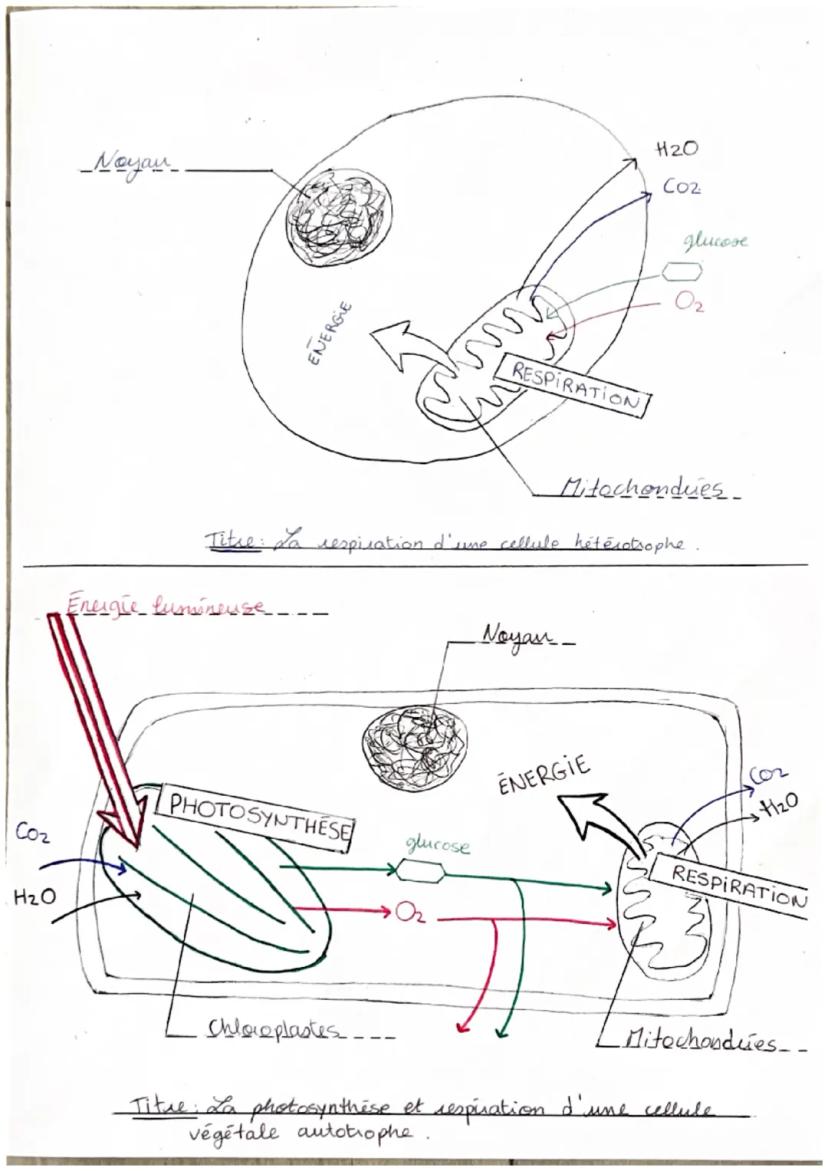 Noyau
H2O
CO2
glucose
O2
ÉNERGIE
RESPIRATION
Mitochondries
Titre : La respiration d'une cellule hétérotrophe.
Énergie lumineuse
Noyau
PHOTOSYNTHÉSE
ÉNERGIE
CO2
H2O
CO2
H2O
glucose
O2
RESPIRATION
Chloroplastes
Mitochondries
Titre : La photosynthése et respiration d'une cellule
végétale autotrophe.